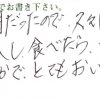 でお書き下さい。
だったので、久々
入し、食べたら、
かで、とてもおい